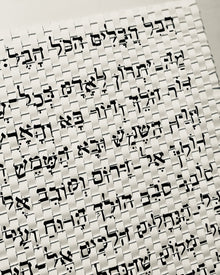 הֲבֵל הֲבָלִים הַכֹּל הָבֶל
מַה־יִּתְרוֹן לָאָדָם בְּכָל־
דּוֹר הֹלֵךְ וְדוֹר בָּא וְהָאָרֶ
וְזָרַח הַשֶּׁמֶשׁ וּבָא הַשָּׁמֶשׁ
הוֹלֵךְ אֶל־דָּרוֹם וְסוֹבֵב אֶל
סוֹבֵב סֹבֵב הוֹלֵךְ הָרוּחַ וְעַ
הַנְּחָלִים הֹלְכִים אֶל־
מְקוֹם